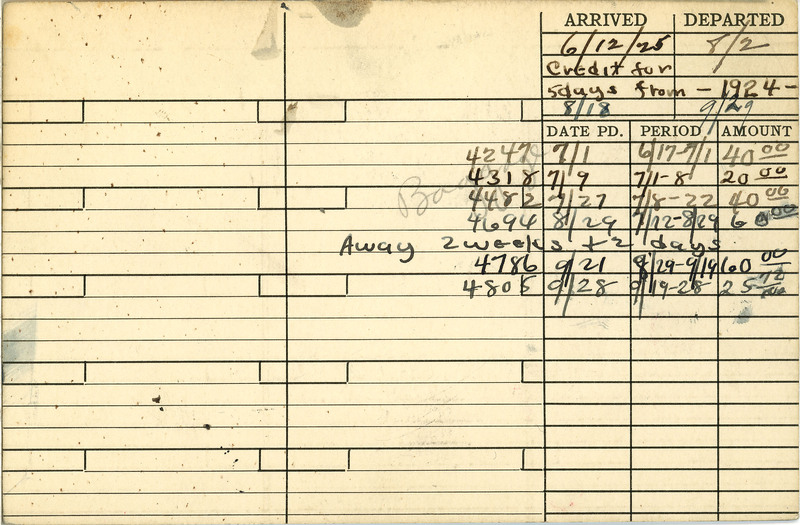 ARRIVED DEPARTED
6/12/25 8/2
Credit for
5days from - 1924 -
8/18 9/29
DATE PD. PERIOD AMOUNT
4247 7/1 6/17-7/1 40 00
4318 7/9 7/1-8 20 00
4482 7/27 7/8-22 40 00
4694 8/29 7/22-8/29 60 00
Away 2 weeks + 2 days
4786 9/21 8/29-9/19 60 00
4805 9/28 9/19-28 25